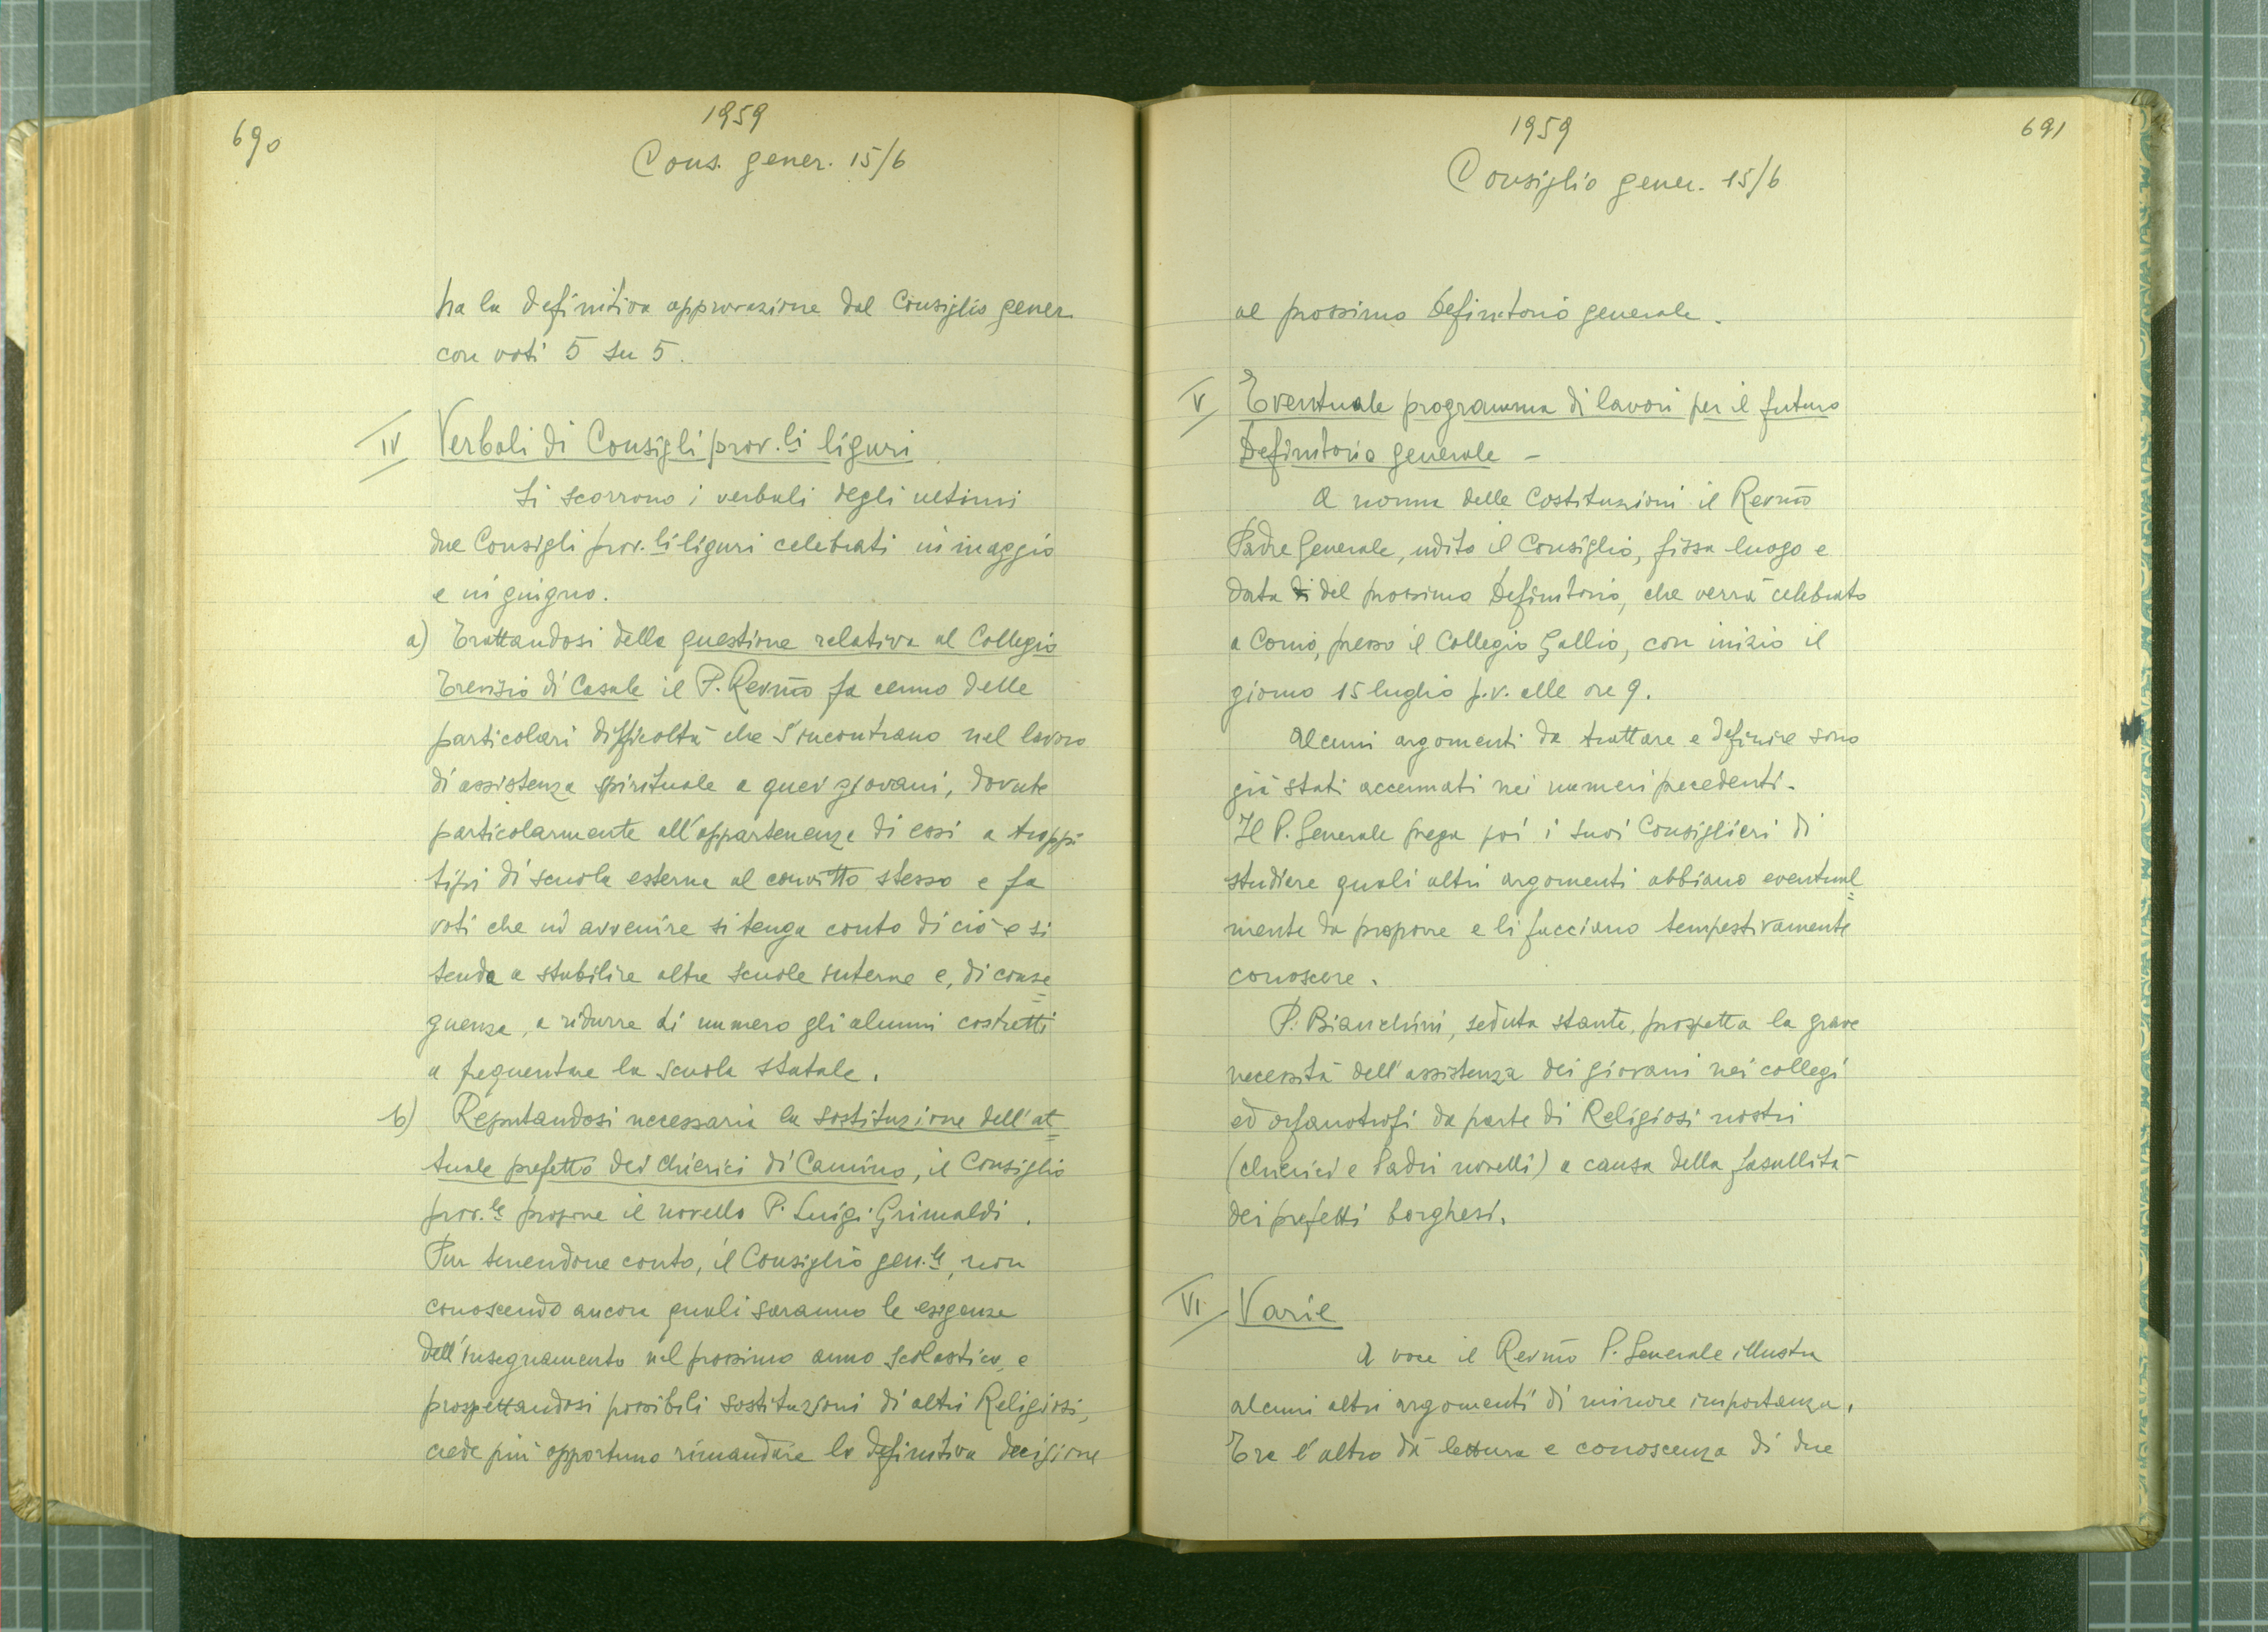 690
1959
Cons. gener. 15/6
ha la definitiva approvazione dal Consiglio gener.
con voti 5 su 5.
IV Verbali di Consigli prov.li liguri.
Si scorrono i verbali degli ultimi
due Consigli prov.li liguri celebrati in maggio
e in giugno.
a) Trattandosi della questione relativa al Collegio
Trevisio di Casale il P. Rev.mo fa cenno delle
particolari difficoltà che s'incontrano nel lavoro
di assistenza spirituale a quei giovani, dovute
particolarmente all'appartenenza di essi a troppi
tipi di scuola esterna al convitto stesso e fa
voti che in avvenire si tenga conto di ciò e si
tenda a stabilire altre scuole interne e, di conse=
guenza, a ridurre di numero gli alunni costretti
a frequentare la scuola statale.
b) Reputandosi necessaria la sostituzione dell'at=
tuale prefetto dei chierici di Camino, il Consiglio
prov.le propone il novello P. Luigi Grimaldi.
Pur tenendone conto, il Consiglio gen.le, non
conoscendo ancora quali saranno le esigenze
dell'insegnamento nel prossimo anno scolastico, e
prospettandosi possibili sostituzioni di altri Religiosi,
crede più opportuno rimandare la definitiva decisione
1959
691
Consiglio gener. 15/6
al prossimo Definitorio generale.
V Eventuale programma di lavori per il futuro
Definitorio generale -
A norma delle Costituzioni il Rev.mo
Padre Generale, udito il Consiglio, fissa luogo e
data di del prossimo Definitorio, che verrà celebrato
a Como, presso il Collegio Gallio, con inizio il
giorno 15 luglio p.v. alle ore 9.
Alcuni argomenti da trattare e definire sono
già stati accennati nei numeri precedenti.
Il P. Generale prega poi i suoi Consiglieri di
studiare quali altri argomenti abbiano eventual=
mente da proporre e li facciano tempestivamente
conoscere.
P. Bianchini, seduta stante, prospetta la grave
necessità dell'assistenza dei giovani nei collegi
ed orfanotrofi da parte di Religiosi nostri
(chierici e Padri novelli) a causa della fasullità
dei prefetti borghesi.
VI Varie
A voce il Rev.mo P. Generale illustra
alcuni altri argomenti di minore importanza.
Tra l'altro dà lettura e conoscenza di due